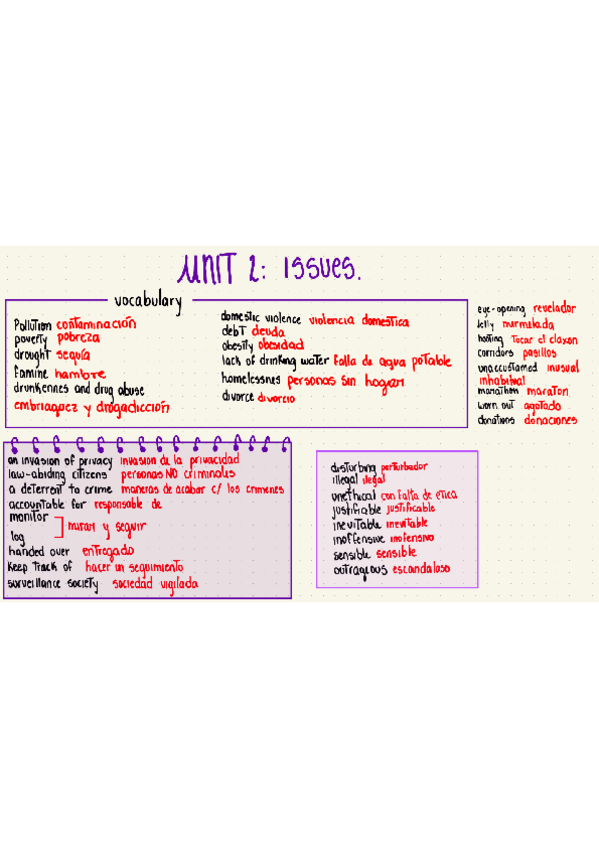 UNIT 2: ISSUES.
vocabulary
Pollution contaminación
poverty pobreza
drought sequía
Famine hambre
drunkennes and drug abuse
embriaguez y drogadicción
domestic violence violencia domestica
debt deuda
obesity obesidad
lack of drinking water falla de agua potable
homelessnes personas sin hogar
divorce divorcio
eye-opening revelador
Jelly murmelada
hooting Tocar el claxon
corridors pasillos
unaccustomed inusual
inhabitual
marathon maraton
worn out agotado
donations donaciones
an invasion of privacy invasion de la privacidad
law-abiding citizens personas NO criminales
a deterrent to crime maneras de acabar c/ los crimenes
accountable for responsable de
monitor
log
mirar y seguir
handed over entregado
Keep Track of hacer un seguimiento
surveillance society sociedad vigilada
disturbing perturbador
illegal ilegal
unethical con falta de etica
justifiable justificable
inevitable inevitable
inoffensive inofensivo
sensible sensible
outrageous escandaloso